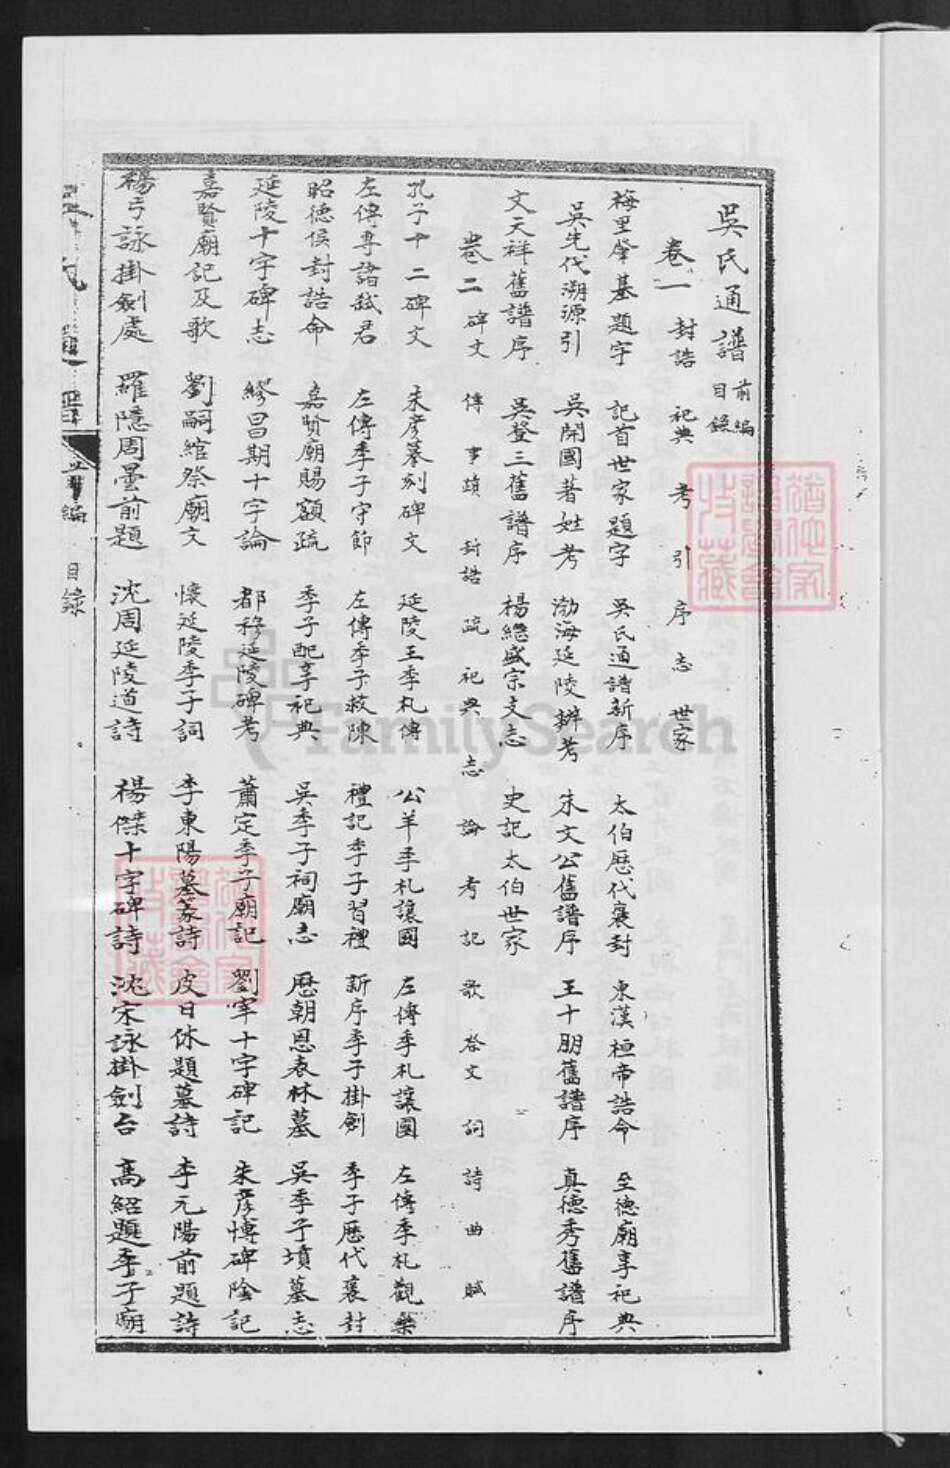 吳氏通譜前編目錄
卷一 封誥 祀典 考 引 序 志 世家
梅里肇基題字 記首世家題字 吳氏通譜新序 太伯歷代襃封 東漢桓帝誥命 至德廟享祀典
吳先代溯源引 吳開國著姓考 渤海延陵辦考 朱文公舊譜序 王十朋舊譜序 真德秀舊譜序
文天祥舊譜序 吳登三舊譜序 楊繼盛宗文志 史記太伯世家
卷二 碑文 傳 事蹟 封誥 疏 祀典 志 論 考 記 歌 祭文 詞 詩 曲 賦
孔子十二碑文 朱彥摹刻碑文 延陵王季札傳 公羊季札讓國 左傳季札讓國 左傳季札觀樂
左傳專諸弒君 左傳季子守節 左傳季子救陳 禮記季子習禮 新序季子掛劍 季子歷代襃封
昭德侯封誥命 嘉賢廟賜額疏 季子配享祀典 吳季子祠廟志 歷朝恩表林墓 吳季子墳墓志
延陵十字碑志 繆昌期十字論 都穆延陵碑考 蕭定季子廟記 劉宰十字碑記 朱彥博碑陰記
嘉賢廟記及歌 劉嗣綰祭廟文 懷延陵季子詞 李東陽墓篆詩 皮日休題墓詩 李元陽前題詩
楊于詠掛劍處 羅隱周曇前題 沈周延陵道詩 楊傑十字碑詩 沈宋詠掛劍台 高紹題季子廟
吳氏通譜 前編 目錄
FamilySearch
猶他家譜學會技藏
猶他家譜學會技藏